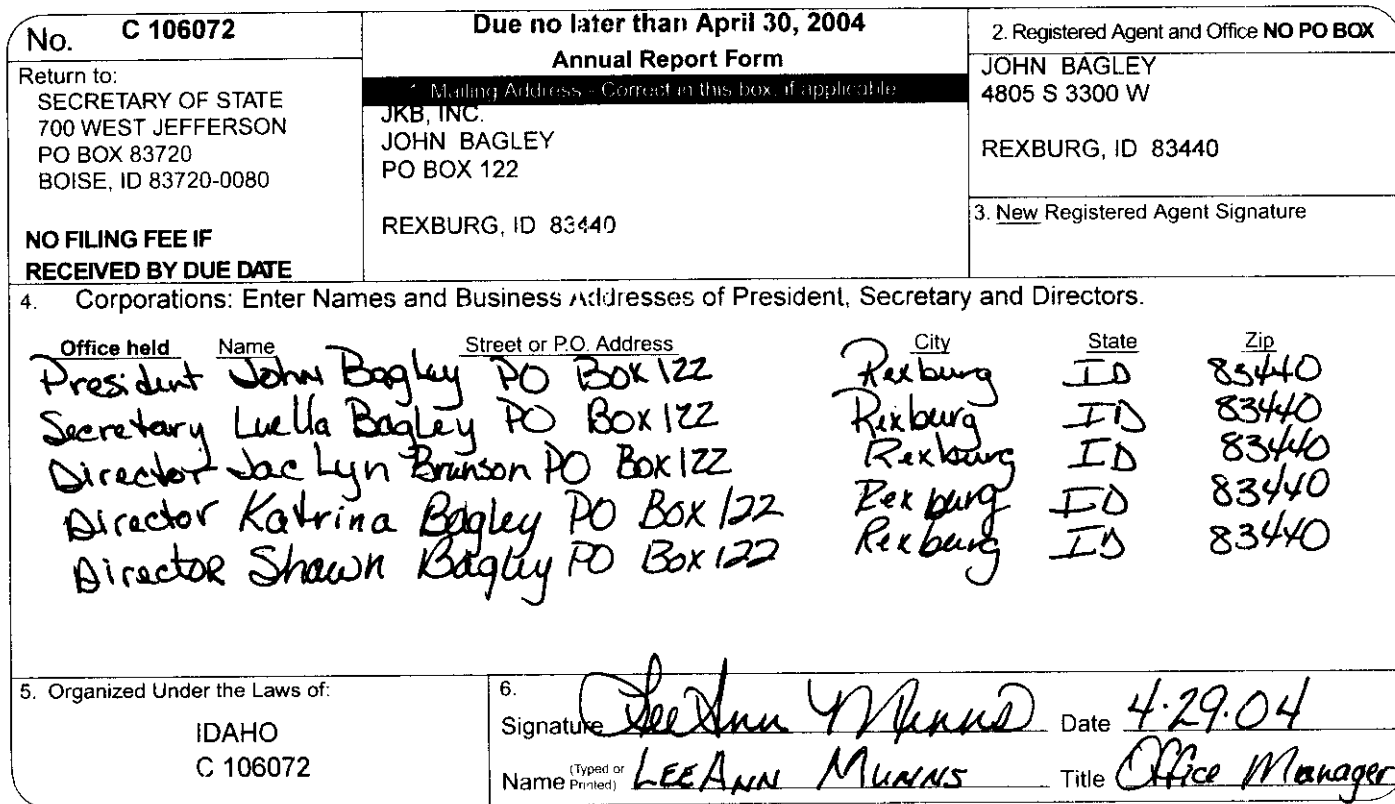 No. C 106072
Return to:
SECRETARY OF STATE
700 WEST JEFFERSON
PO BOX 83720
BOISE, ID 83720-0080
NO FILING FEE IF
RECEIVED BY DUE DATE
Due no later than April 30, 2004
Annual Report Form
1. Mailing Address - Correct in this box, if applicable
JKB, INC.
JOHN BAGLEY
PO BOX 122
REXBURG, ID 83440
2. Registered Agent and Office NO PO BOX
JOHN BAGLEY
4805 S 3300 W
REXBURG, ID 83440
3. New Registered Agent Signature
4. Corporations: Enter Names and Business Addresses of President, Secretary and Directors.
Office held Name Street or P.O. Address City State Zip
President John Bagley PO Box 122 Rexburg ID 83440
Secretary Luella Bagley PO Box 122 Rexburg ID 83440
Director Jac Lyn Brunson PO Box 122 Rexburg ID 83440
Director Katrina Bagley PO Box 122 Rexburg ID 83440
Director Shawn Bagley PO Box 122 Rexburg ID 83440
5. Organized Under the Laws of:
IDAHO
C 106072
6.
Signature LeeAnn Munns Date 4.29.04
Name (Typed or Printed) LEEANN MUNNS Title Office Manager